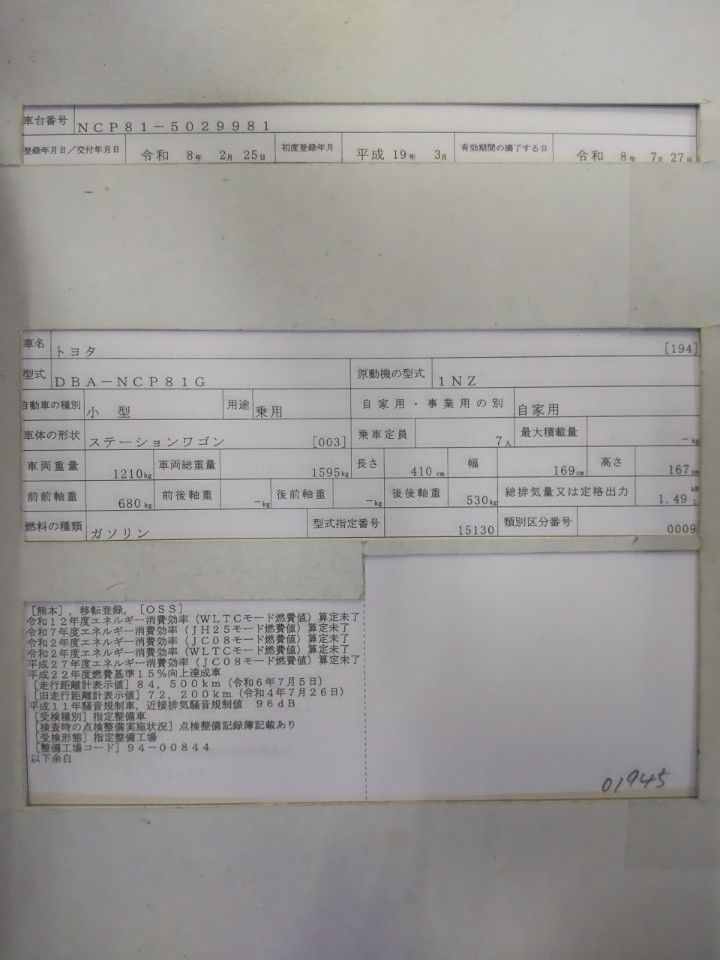 車台番号 NCP81-5029981
登録年月日／交付年月日 令和 8年 2月 25日 初度登録年月 平成 19年 3月 有効期間の満了する日 令和 8年 7月 27日
車名 トヨタ [194]
型式 DBA-NCP81G 原動機の型式 1NZ
自動車の種別 小型 用途 乗用 自家用・事業用の別 自家用
車体の形状 ステーションワゴン [003] 乗車定員 7人 最大積載量 -kg
車両重量 1210kg 車両総重量 1595kg 長さ 410cm 幅 169cm 高さ 167cm
前前軸重 680kg 前後軸重 -kg 後前軸重 -kg 後後軸重 530kg 総排気量又は定格出力 1.49 kW L
燃料の種類 ガソリン 型式指定番号 15130 類別区分番号 0009
[熊本]，移転登録，[OSS]
令和12年度エネルギー消費効率（WLTCモード燃費値）算定未了
令和7年度エネルギー消費効率（JH25モード燃費値）算定未了
令和2年度エネルギー消費効率（JC08モード燃費値）算定未了
令和2年度エネルギー消費効率（WLTCモード燃費値）算定未了
平成27年度エネルギー消費効率（JC08モード燃費値）算定未了
平成22年度燃費基準15％向上達成車
[走行距離計表示値] 84，500km（令和6年7月5日）
[旧走行距離計表示値] 72，200km（令和4年7月26日）
平成11年騒音規制車，近接排気騒音規制値 96dB
[受検種別] 指定整備車
[検査時の点検整備実施状況] 点検整備記録簿記載あり
[受検形態] 指定整備工場
[整備工場コード] 94-00844
以下余白
01945